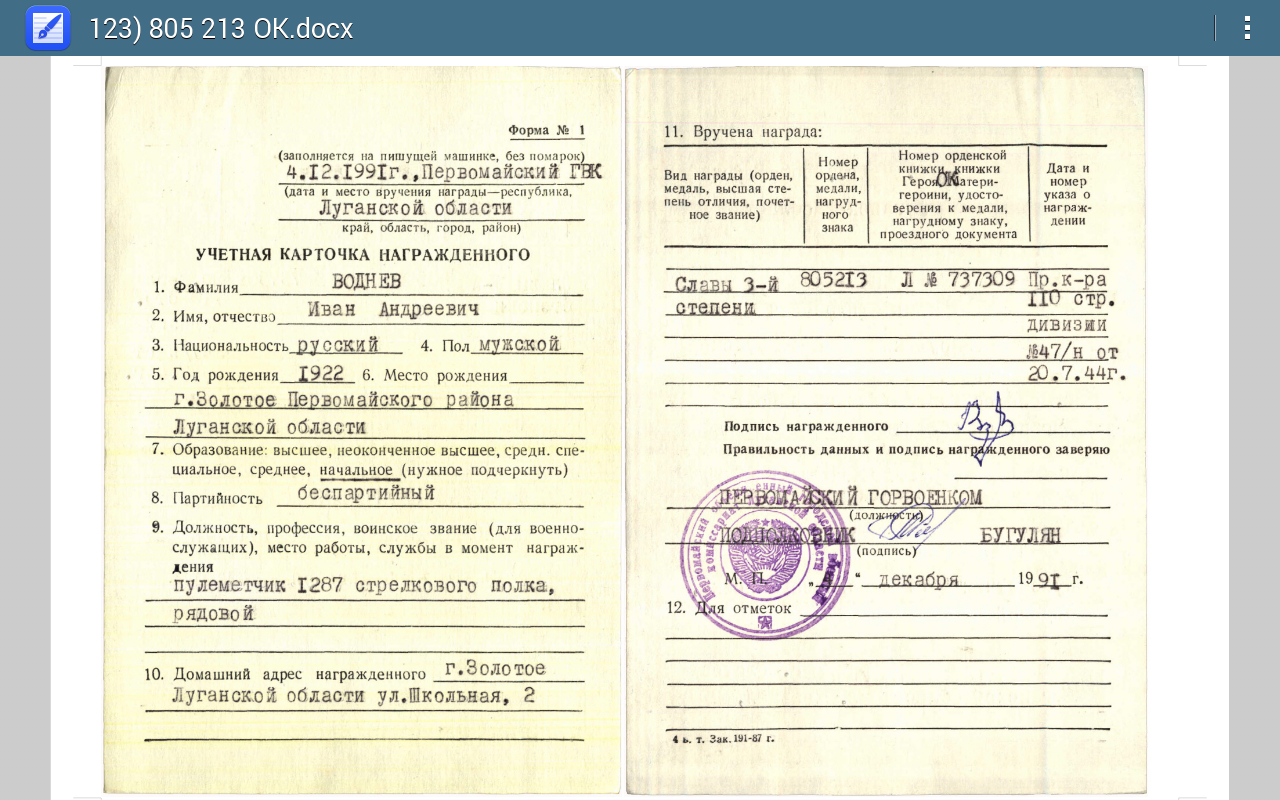 123) 805 213 OK.docx
Форма № 1
(заполняется на пишущей машинке, без помарок)
4.12.1991г.,Первомайский ГВК
(дата и место вручения награды—республика,
Луганской области
край, область, город, район)
УЧЕТНАЯ КАРТОЧКА НАГРАЖДЕННОГО
1. Фамилия ВОДНЕВ
2. Имя, отчество Иван Андреевич
3. Национальность русский 4. Пол мужской
5. Год рождения 1922 6. Место рождения
г.Золотое Первомайского района
Луганской области
7. Образование: высшее, неоконченное высшее, средн. спе-
циальное, среднее, начальное (нужное подчеркнуть)
8. Партийность беспартийный
9. Должность, профессия, воинское звание (для военно-
служащих), место работы, службы в момент награж-
дения
пулеметчик 1287 стрелкового полка,
рядовой
10. Домашний адрес награжденного г.Золотое
Луганской области ул.Школьная, 2
11. Вручена награда:
Вид награды (орден,
медаль, высшая сте-
пень отличия, почет-
ное звание)
Номер
ордена,
медали,
нагруд-
ного
знака
Номер орденской
книжки, книжки
Героя, Матери-
ОК
героини, удосто-
верения к медали,
нагрудному знаку,
проездного документа
Дата и
номер
указа о
награж-
дении
Славы 3-й 805213 Л № 737309 Пр.к-ра
степени 110 стр.
дивизии
№47/н от
20.7.44г.
Подпись награжденного
Правильность данных и подпись награжденного заверяю
ПЕРВОМАЙСКИЙ ГОРВОЕНКОМ
(должность)
ПОДПОЛКОВНИК БУГУЛЯН
(подпись)
М. П. „ “ декабря 1991 г.
12. Для отметок
4 в. т. Зак. 191-87 г.